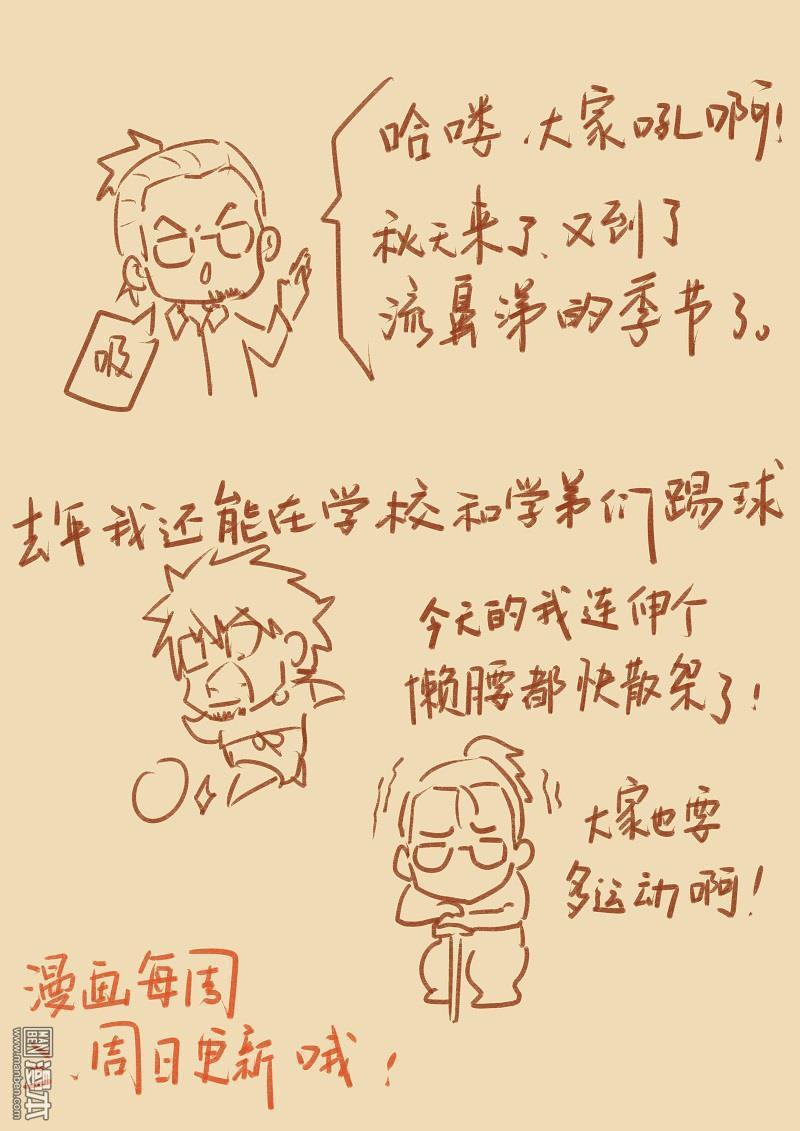 哈喽、大家吼啊!
秋天来了、又到了
流鼻涕的季节了。
吸
去年我还能在学校和学弟们踢球
今天的我连伸个
懒腰都快散架了!
大家也要
多运动啊!
漫画每周
周日更新哦!
漫本
MANBEN
www.manben.com